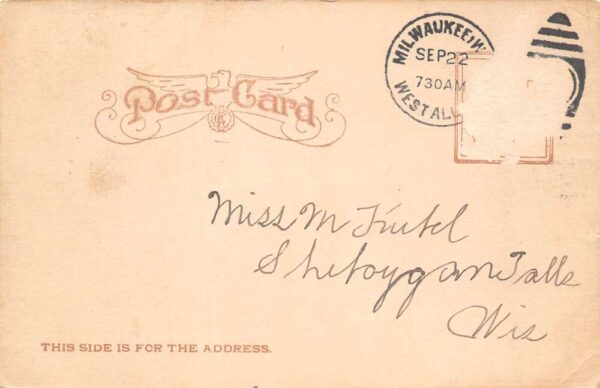 MILWAUKEE, W
SEP 22
730 AM
WEST ALL
Post Card
Miss M Kutel
Sheboygan Falls
Wis
THIS SIDE IS FOR THE ADDRESS.